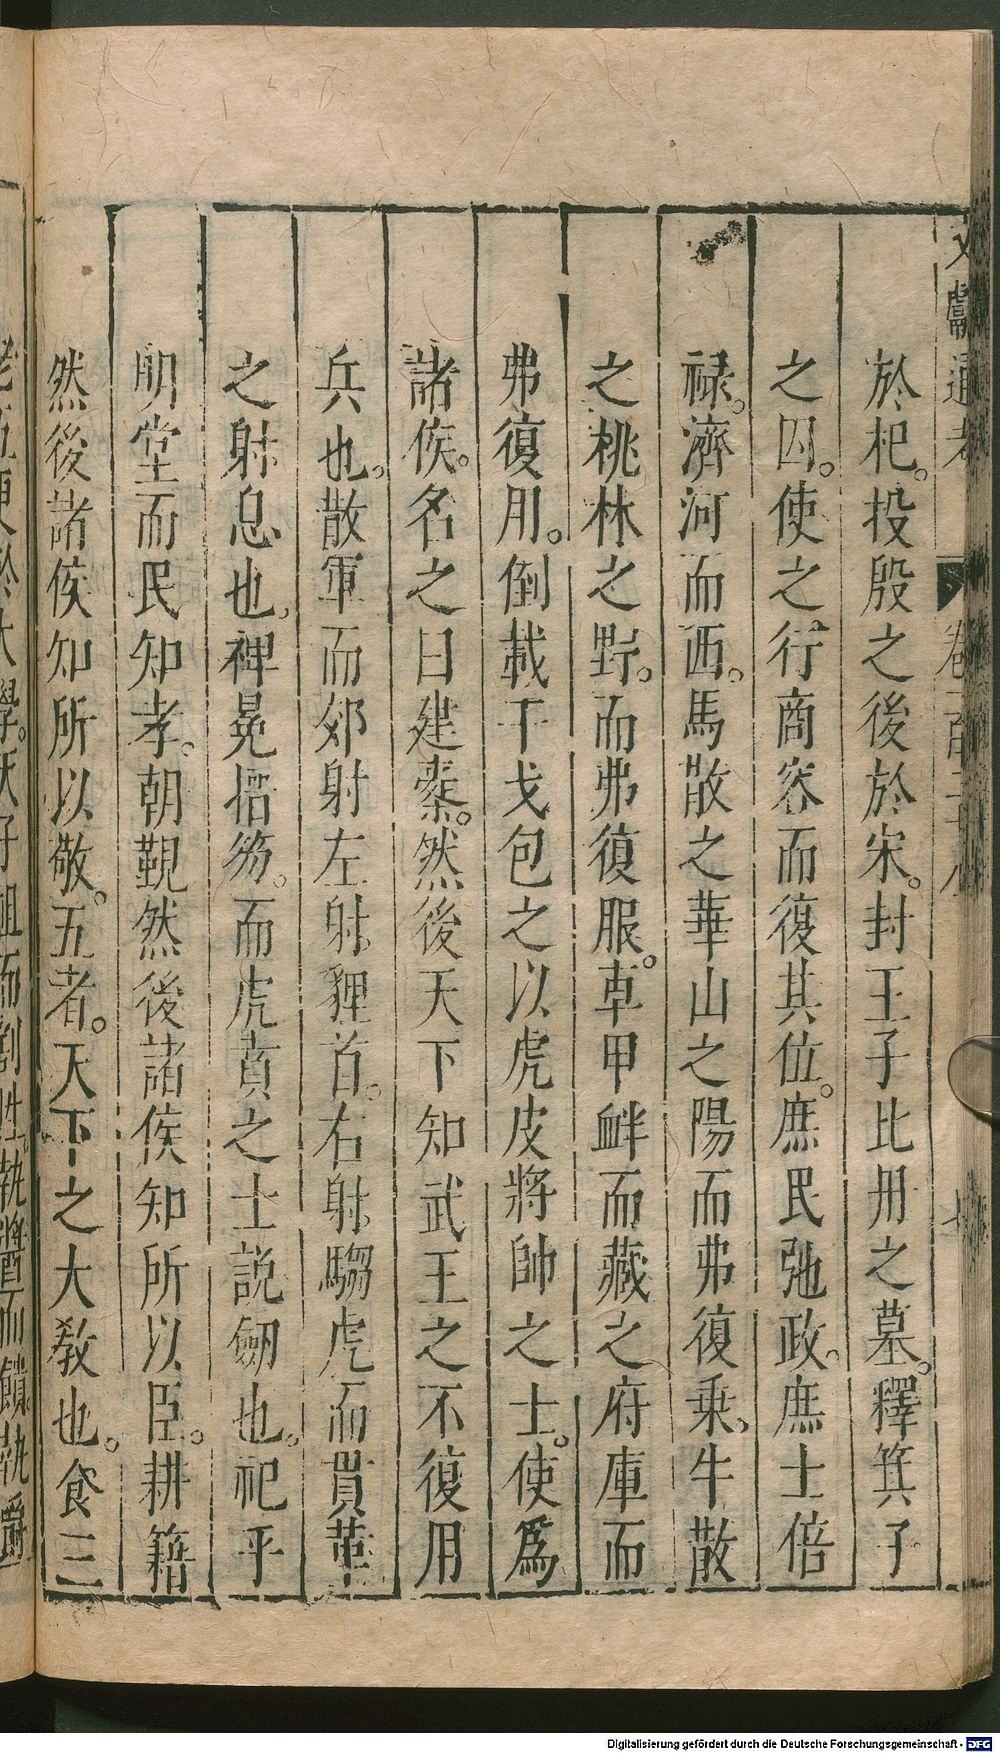 文獻通考
於杞。投殷之後於宋。封王子比干之墓。釋箕子
之囚。使之行商容而復其位。庶民弛政。庶士倍
禄。濟河而西。馬散之華山之陽而弗復乗。牛散
之桃林之野。而弗復服。車甲衅而藏之府庫而
弗復用。倒載干戈包之以虎皮將帥之士。使爲
諸侯。名之曰建櫜。然後天下知武王之不復用
兵也。散軍而郊射左射貍首。右射騶虞而貫革
之射息也。裨冕搢笏。而虎賁之士說劒也。祀乎
明堂而民知孝。朝覲然後諸侯知所以臣。耕籍
然後諸侯知所以敬。五者。天下之大教也。食三
老五更於大學。天子袒而割牲。執醬而饋。執爵
Digitalisierung gefördert durch die Deutsche Forschungsgemeinschaft - DFG